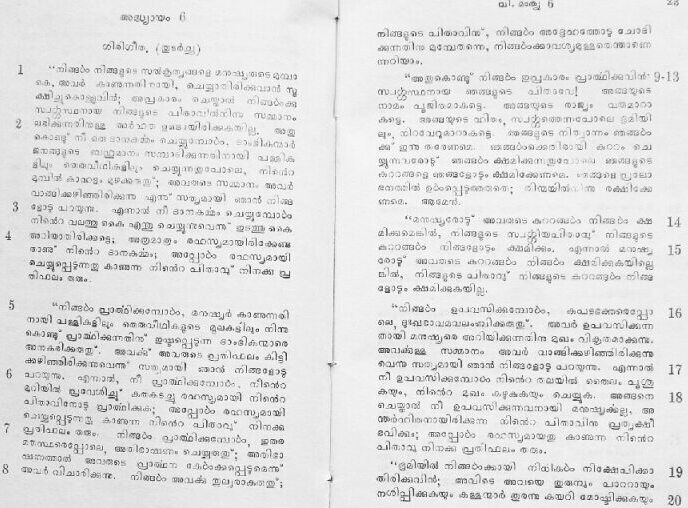 അദ്ധ്യായം 6
ഗിരിഗീത. (തുടർച്ച)
1 “നിങ്ങൾ നിങ്ങളുടെ സൽകൃത്യങ്ങളെ മനുഷ്യരുടെ മുമ്പാ
കെ, അവർ കാണുന്നതിനായി, ചെയ്യാതിരിക്കുവാൻ സൂ
ക്ഷിച്ചുകൊള്ളുവിൻ; അപ്രകാരം ചെയ്താൽ നിങ്ങൾക്കു
സ്വർഗ്ഗസ്ഥനായ നിങ്ങളുടെ പിതാവിൽനിന്നു സമ്മാനം
2 ലഭിക്കുന്നതിനുള്ള അർഹത ഉണ്ടായിരിക്കുകയില്ല. അതു
കൊണ്ടു് നീ ഒരു ദാനകൎമ്മം ചെയ്യുമ്പോൾ, ഡാംഭികന്മാർ
ജനങ്ങളുടെ ബഹുമാനം സമ്പാദിക്കുന്നതിനായി പള്ളിക
ളിലും തെരുവീഥികളിലും ചെയ്യുന്നതുപോലെ, നിൻെറ
മുമ്പിൽ കാഹളം മുഴക്കരുതു്; അവരുടെ സമ്മാനം അവർ
വാങ്ങിക്കഴിഞ്ഞിരിക്കുന്നു എന്നു് സത്യമായി ഞാൻ നിങ്ങ
3 ളോടു പറയുന്നു. എന്നാൽ നീ ദാനകൎമ്മം ചെയ്യുമ്പോൾ
നിൻെറ വലത്തു കൈ എന്തു ചെയ്യുന്നുവെന്നു് ഇടത്തു കൈ
4 അറിയാതിരിക്കട്ടെ; അതുമാത്രം രഹസ്യമായിരിക്കേണ്ട
താണു് നിൻെറ ദാനകൎമ്മം; അപ്പോൾ രഹസ്യമായി
ചെയ്യപ്പെടുന്നതു കാണുന്ന നിൻെറ പിതാവു് നിനക്കു പ്ര
തിഫലം തരും.
5 “നിങ്ങൾ പ്രാൎത്ഥിക്കുമ്പോൾ, മനുഷ്യർ കാണുന്നതി
നായി പള്ളികളിലും തെരുവീഥികളുടെ മൂലകളിലും നിന്നു
കൊണ്ടു് പ്രാൎത്ഥിക്കുന്നതിനു് ഇഷ്ടപ്പെടുന്ന ഡാംഭികന്മാരെ
അനുകരിക്കരുതു്. അവൎക്കു് അവരുടെ പ്രതിഫലം കിട്ടി
ക്കഴിഞ്ഞിരിക്കുന്നുവെന്നു് സത്യമായി ഞാൻ നിങ്ങളോടു
6 പറയുന്നു. എന്നാൽ, നീ പ്രാൎത്ഥിക്കുമ്പോൾ, നിൻെറ
മുറിയിൽ പ്രവേശിച്ചു് കതകടച്ചു രഹസ്യമായി നിൻെറ
പിതാവിനോടു പ്രാൎത്ഥിക്കുക; അപ്പോൾ രഹസ്യമായി
ചെയ്യപ്പെടുന്നതു കാണുന്ന നിൻെറ പിതാവു് നിനക്കു
7 പ്രതിഫലം തരും. നിങ്ങൾ പ്രാൎത്ഥിക്കുമ്പോൾ, ഇതര
മതസ്ഥരെപ്പോലെ, അതിഭാഷണം ചെയ്യരുതു്; അതിഭാ
ഷണത്താൽ അവരുടെ പ്രാൎത്ഥന കേൾക്കപ്പെടുമെന്നു്
8 അവർ വിചാരിക്കുന്നു. നിങ്ങൾ അവൎക്കു തുല്യരാകരുതു്;
വി. മത്തായി 6
നിങ്ങളുടെ പിതാവിനു്, നിങ്ങൾ അദ്ദേഹത്തോടു ചോദി
ക്കുന്നതിനു മുമ്പേതന്നെ, നിങ്ങൾക്കാവശ്യമുള്ളതെന്താണെ
ന്നറിയാം.
“അതുകൊണ്ടു് നിങ്ങൾ ഇപ്രകാരം പ്രാൎത്ഥിക്കുവിൻ 9-13
സ്വൎഗ്ഗസ്ഥനായ ഞങ്ങളുടെ പിതാവേ! അങ്ങയുടെ
നാമം പൂജിതമാകട്ടെ. അങ്ങയുടെ രാജ്യം വരുമാറാ
കട്ടെ. അങ്ങയുടെ ഹിതം, സ്വൎഗ്ഗത്തെന്നപോലെ ഭൂമിയി
ലും, നിറവേറുമാറാകട്ടെ. ഞങ്ങളുടെ നിത്യാന്നം ഞങ്ങൾ
ക്കു് ഇന്നു തരേണമേ. ഞങ്ങൾക്കെതിരായി കുററം ചെ
യ്യുന്നവരോടു് ഞങ്ങൾ ക്ഷമിക്കുന്നതുപോലെ ഞങ്ങളുടെ
കുററങ്ങളെ ഞങ്ങളോടും ക്ഷമിക്കേണമേ. ഞങ്ങളെ പ്രലോ
ഭനത്തിൽ ഉൾപ്പെടുത്തരുതെ; തിന്മയിൽനിന്നു രക്ഷിക്കേ
ണമേ. ആമേൻ.
“മനുഷ്യരോടു് അവരുടെ കുററങ്ങൾ നിങ്ങൾ ക്ഷ 14
മിക്കുമെങ്കിൽ, നിങ്ങളുടെ സ്വൎഗ്ഗീയപിതാവു് നിങ്ങളുടെ
കുററങ്ങൾ നിങ്ങളോടും ക്ഷമിക്കും. എന്നാൽ മനുഷ്യ 15
രോടു് അവരുടെ കുററങ്ങൾ നിങ്ങൾ ക്ഷമിക്കുകയില്ലെ
ങ്കിൽ, നിങ്ങളുടെ പിതാവു് നിങ്ങളുടെ കുററങ്ങൾ നിങ്ങ
ളോടും ക്ഷമിക്കുകയില്ല.
“നിങ്ങൾ ഉപവസിക്കുമ്പോൾ, കപടഭക്തരെപ്പോ 16
ലെ, ദുഃഖഭാവമവലംബിക്കരുതു്. അവർ ഉപവസിക്കുന്ന
തായി മനുഷ്യരെ അറിയിക്കുന്നതിനു മുഖം വികൃതമാക്കുന്നു.
അവൎക്കുള്ള സമ്മാനം അവർ വാങ്ങിക്കഴിഞ്ഞിരിക്കുന്നു
വെന്നു സത്യമായി ഞാൻ നിങ്ങളോടു പറയുന്നു. എന്നാൽ 17
നീ ഉപവസിക്കുമ്പോൾ നിൻെറ തലയിൽ തൈലം പൂശു
കയും, നിൻെറ മുഖം കഴുകുകയും ചെയ്യുക. അങ്ങനെ 18
ചെയ്താൽ നീ ഉപവസിക്കുന്നവനായി മനുഷ്യൎക്കല്ല, അ
ന്തൎഹിതനായിരിക്കുന്ന നിൻെറ പിതാവിനു പ്രത്യക്ഷീ
ഭവിക്കും; അപ്പോൾ രഹസ്യമായതു കാണുന്ന നിൻെറ
പിതാവു നിനക്കു പ്രതിഫലം തരും.
“ഭൂമിയിൽ നിങ്ങൾക്കായി നിധികൾ നിക്ഷേപിക്കാ 19
തിരിക്കുവിൻ; അവിടെ അവയെ തുരുമ്പും പാററായും
നശിപ്പിക്കുകയും കള്ളന്മാർ തുരന്നു കയറി മോഷ്ടിക്കുകയും 20